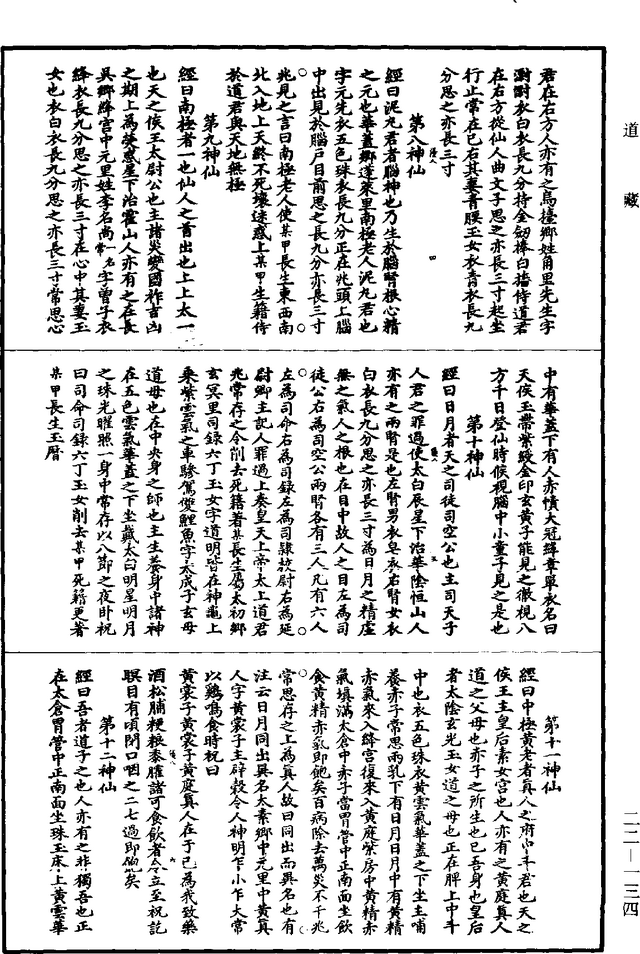 道藏
君在右方人亦有之烏臺鄉姓角里先生字
灂灂衣白衣長九分持金劒捧白旛侍道君
在右方從仙人曲文子思之亦長三寸起坐
行止常在已右其妻青腰玉女衣青衣長九
分思之亦長三寸
第八神仙
經曰泥丸君者腦神也乃生於腦腎根心精
之元也華蓋鄉蓬萊里南極老人泥丸君也
字元先衣五色珠衣長九分正在兆頭上腦
中出見於腦戶目前思之長九分亦長三寸
兆見之言曰南極老人使某甲長生東西南
北入地上天終不死壞迷惑上某甲生籍侍
於道君與天地無極
第九神仙
經曰南極者一也仙人之首出也上上太一
也天之侯王太尉公也主諸災變國祚吉凶
之期上為熒惑星下治霍山人亦有之在長
吳鄉絳宮中元里姓李名尚一名常字曾子衣
絳衣長九分思之亦長三寸在心中其妻玉
女也衣白衣長九分思之亦長三寸常思心
中有華蓋下有人赤幘大冠絳章單衣名曰
天侯玉帶紫綬金印玄黃子能見之徹視八
方千日登仙時候視腦中小童子見之是也
第十神仙
經曰日月者天之司徒司空公也主司天子
人君之罪過使太白辰星下治華陰恒山人
亦有之兩腎是也左腎男衣皂衣右腎女衣
白衣長九分思之亦長三寸為日月之精虛
無之氣人之根也在目中故人之目左為司
徒公右為司空公兩腎各有三人凡有六人
左為司命右為司錄左為司隸校尉右為延
尉卿主記人罪過上奏皇天上帝太上道君
兆常存之令削去死籍著某長生屬太初鄉
玄冥里司錄六丁玉女字道明皆在神龜上
乘紫雲氣之車驂駕雙鯉魚字太成子玄母
道母也在中央身之師也主生養身中諸神
在五色雲氣華蓋之下坐戴太白明星明月
之珠光曜照一身中常存以八節之夜卽祝
曰司命司錄六丁玉女削去某甲死籍更著
某甲長生玉曆
第十一神仙
經曰中極黃老者真人之府中斗君也天之
侯王主皇后素女宮也人亦有之黃庭真人
道之父母也赤子之所生也已吾身也皇后
者太陰玄光玉女道之母也正在脾上中斗
中也衣五色珠衣黃雲氣華蓋之下坐主哺
養赤子常思兩乳下有日月日月中有黃精
赤氣來入絳宮復來入黃庭紫房中黃精赤
氣填滿太倉中赤子當胃管中正南面坐飲
食黃精赤氣卽飽矣百病除去萬災不干兆
常思存之上為真人故曰同出而異名也有
注云日月同出異名太素鄉中元里中黃真
人字黃裳子主辟穀令人神明乍小乍大常
以鷄鳴食時祝曰
黃裳子黃裳子黃庭真人在于己為我致藥
酒松脯粳粮黍臛諸可食飲者令立至祝訖
瞑目有頃閉口咽之二七過卽飽矣
第十二神仙
經曰吾者道子之也人亦有之非獨吾也正
在太倉胃管中正南面坐珠玉床上黃雲華
二二—一三四